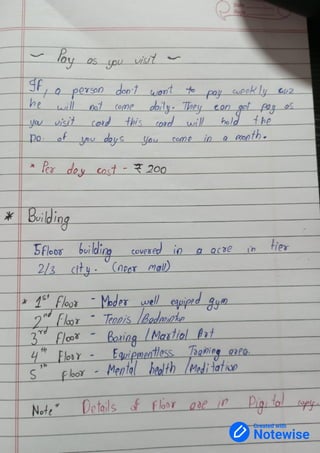 ~ Pay as you visit ~
If, a person don't want to pay weekly cuz
he will not come daily. They can get pay as
you visit card this card will hold the
no. of you days you come in a month.
* Per day cost - ₹ 200
* Building
5floor building covered in a acre in tier
2/3 city. (near mall)
* 1st Floor - Moder well equiped gym
2nd Floor - Tennis / Badminton
3rd Floor - Boxing / Martial Art
4th Floor - Equipmentless Training area.
5th Floor - Mental health / Meditation
Note* Details of Floor are in Digital copy.
Created with
Notewise